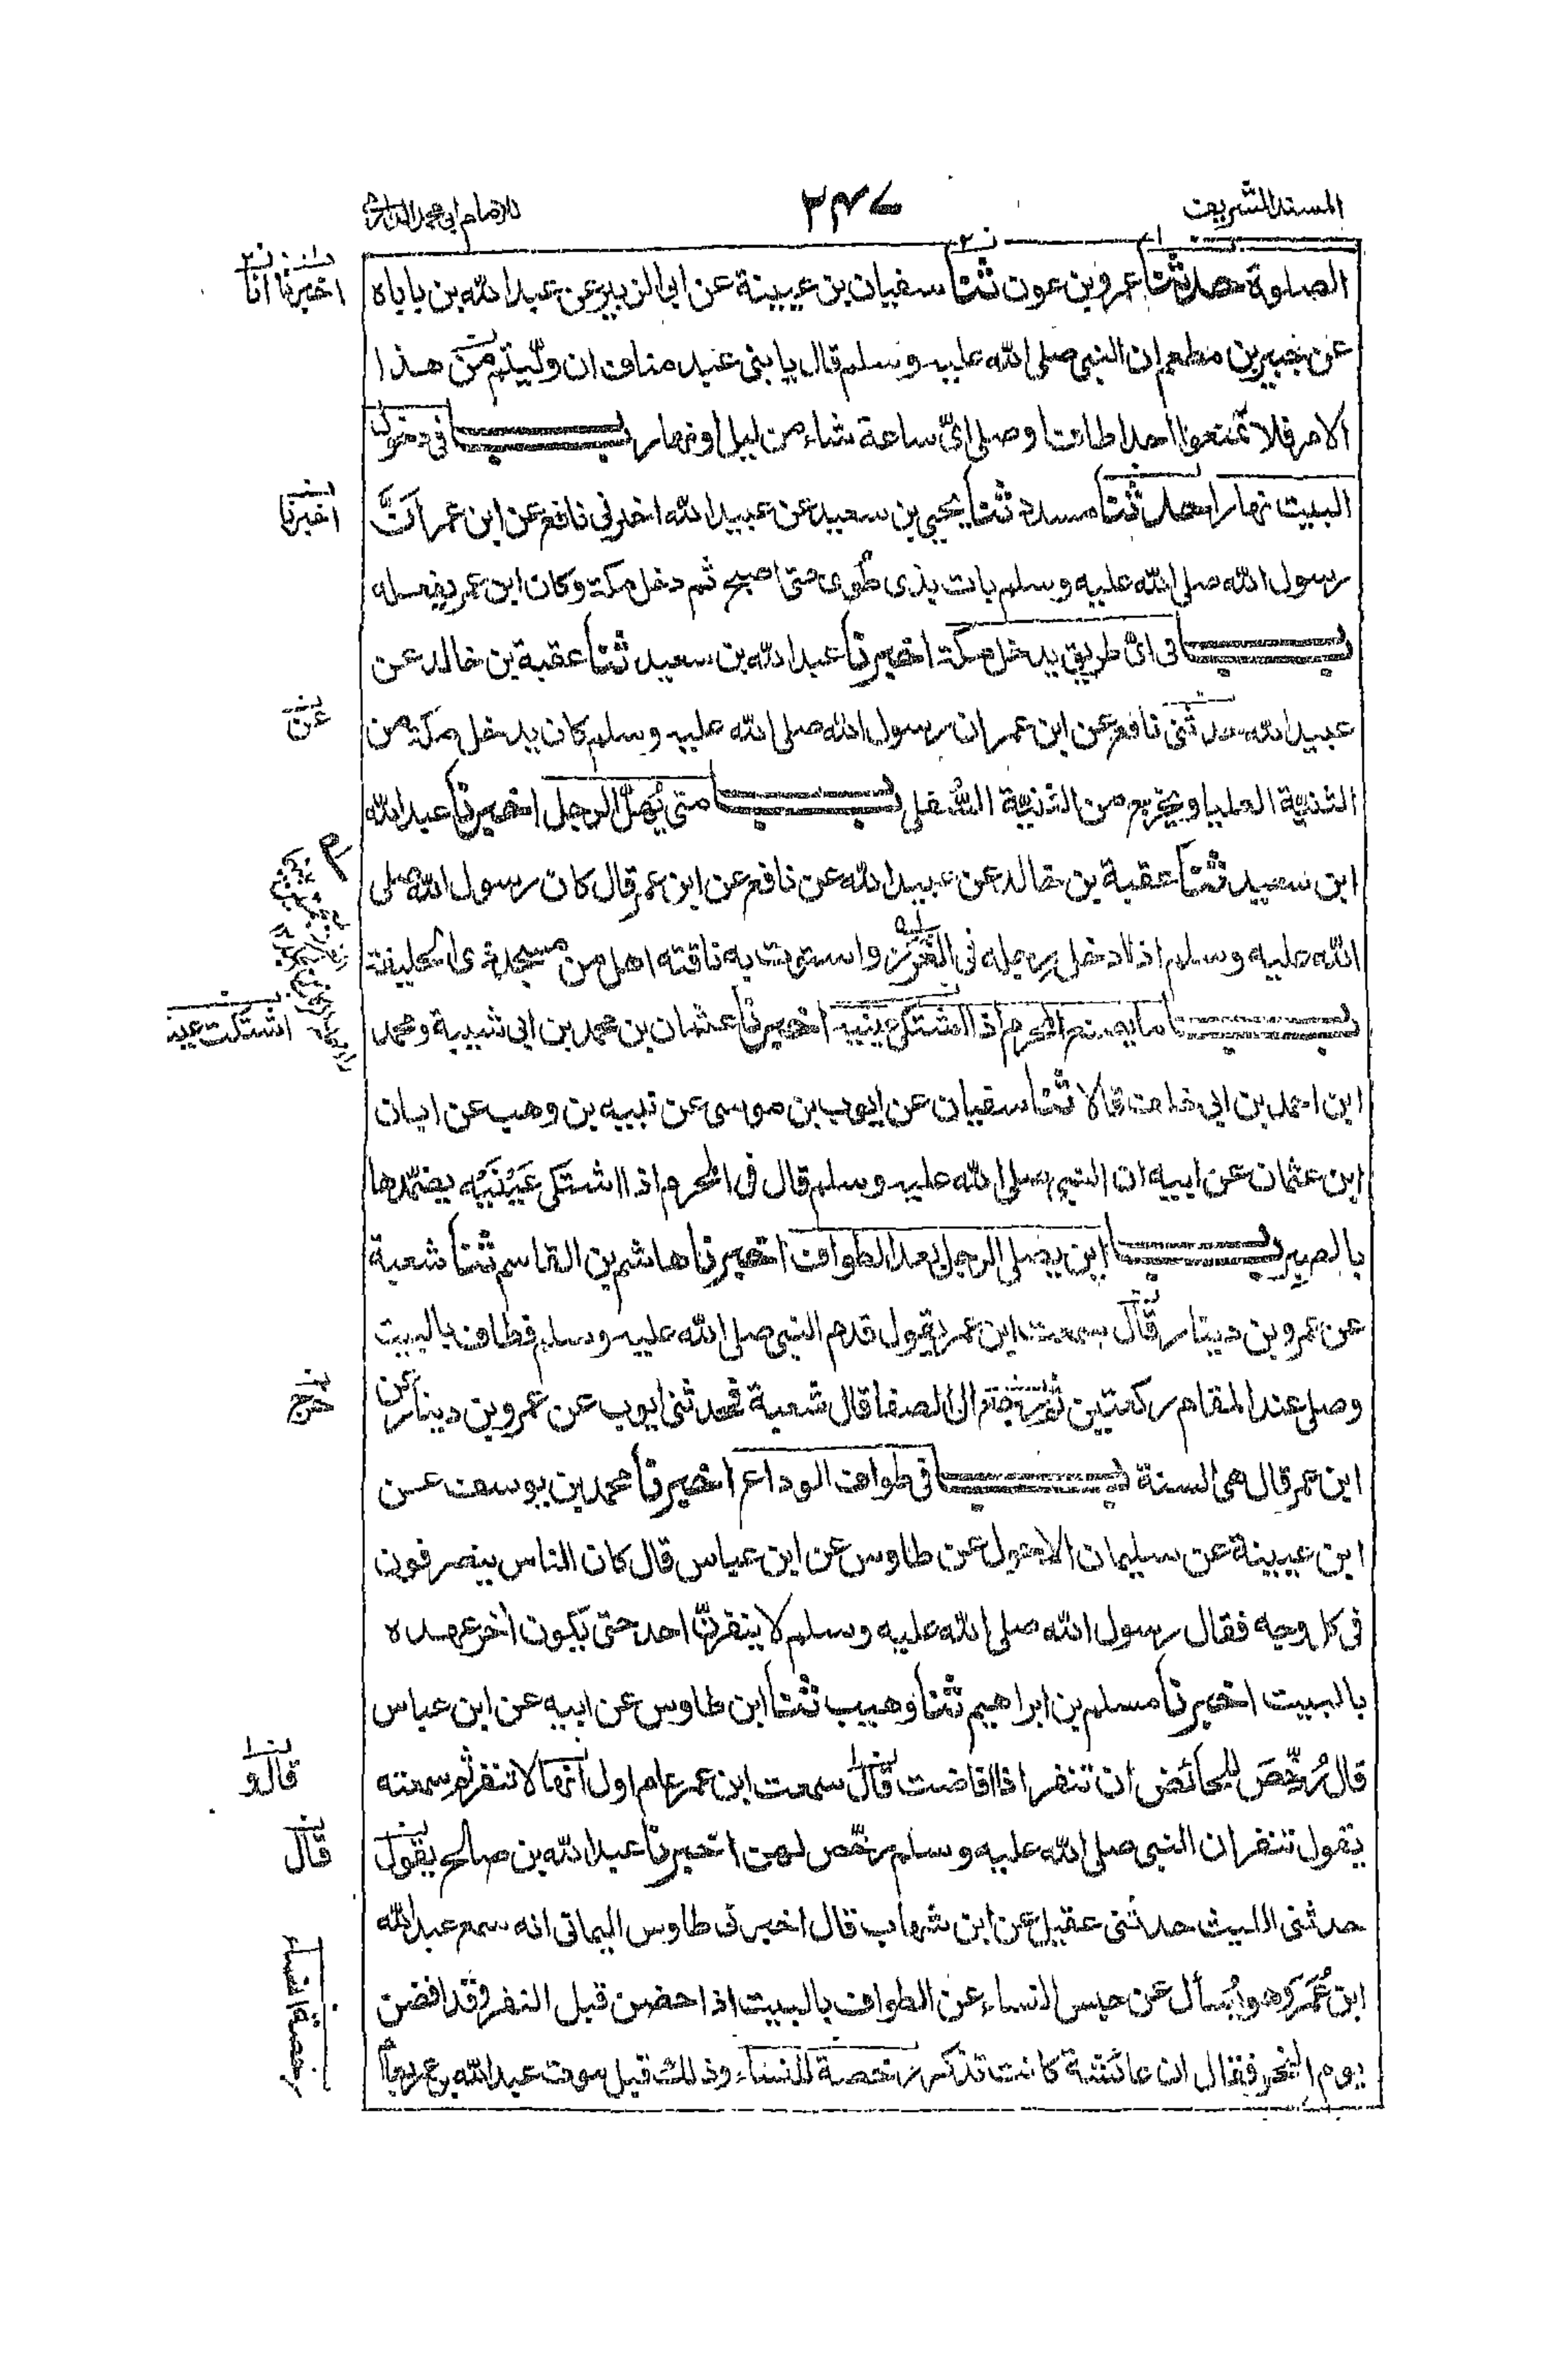 المسند الشريف
٢٤٧
للامام ابي محمد الدارمي
الصلوة حدثنا عمرو بن عون ثنا سفيان بن عيينة عن ابى الزبير عن عبد الله بن باباه
اخبرنا انا
عن جبير بن مطعم ان النبى صلى الله عليه وسلم قال يا بنى عبد مناف ان وليتم من هذا
الامر فلا تمنعوا احدا طاف وصلى اىّ ساعة شاء من ليل او نهار باب فى دخول
البيت نهارا حدثنا مسدد ثنا يحيى بن سعيد عن عبيد الله اخبرنى نافع عن ابن عمر انّ
اخبرنا
رسول الله صلى الله عليه وسلم بات بذى طُوى حتى اصبح ثم دخل مكة وكان ابن عمر يفعله
باب فى اىّ طريق يدخل مكة اخبرنا عبد الله بن سعيد ثنا عقبة بن خالد عن
عبيد الله حدثنى نافع عن ابن عمر ان رسول الله صلى الله عليه وسلم كان يدخل مكة من
عن
الثنيّة العليا ويخرج من الثنيّة السُّفلى باب متى يُهلّ الرجل اخبرنا عبد الله
ابن سعيد ثنا عقبة بن خالد عن عبيد الله عن نافع عن ابن عمر قال كان رسول الله صلى
الله عليه وسلم اذا دخل رجله فى الغرز واستوت به ناقته اهل من مسجد ذى الحليفة
باب ما يصنع المحرم اذا اشتكى عينيه اخبرنا عثمان بن محمد بن ابى شيبة ومحمد
اشتكت عينه
ابن احمد بن ابى خلف قالا ثنا سفيان عن ايوب بن موسى عن نبيه بن وهب عن ابان
ابن عثمان عن ابيه ان النبى صلى الله عليه وسلم قال فى المحرم اذا اشتكى عَيْنَيْه يضمّدها
بالصبر باب اين يصلى الرجل بعد الطواف اخبرنا هاشم بن القاسم ثنا شعبة
عن عمرو بن دينار قال سمعت ابن عمر يقول قدم النبى صلى الله عليه وسلم فطاف بالبيت
وصلى عند المقام ركعتين ثم خرج الى الصفا قال شعبة فحدثنى ايوب عن عمرو بن دينار عن
خرج
ابن عمر قال هى السنة باب فى طواف الوداع اخبرنا محمد بن يوسف عن
ابن عيينة عن سليمان الاحول عن طاوس عن ابن عباس قال كان الناس ينصرفون
فى كل وجه فقال رسول الله صلى الله عليه وسلم لا ينفرنّ احد حتى يكون اخر عهده
بالبيت اخبرنا مسلم بن ابراهيم ثنا وهيب ثنا ابن طاوس عن ابيه عن ابن عباس
قال رُخّصَ للحائض ان تنفر اذا افاضت قال سمعت ابن عمر عام اول انها لا تنفر ثم سمعته
قال و
يقول تنفر ان النبى صلى الله عليه وسلم رخّص لهن اخبرنا عبد الله بن صالح يقول
قال
حدثنى الليث حدثنى عقيل عن ابن شهاب قال اخبرنى طاوس اليمانى انه سمع عبد الله
ابن عُمَرَ وهو يُسأل عن حبس النساء عن الطواف بالبيت اذا حضن قبل النفر وقد افضن
يوم النحر فقال ان عائشة كانت تذكر رخصة للنساء وذلك قبل موت عبد الله بن عمر بعام
رخصة النساء